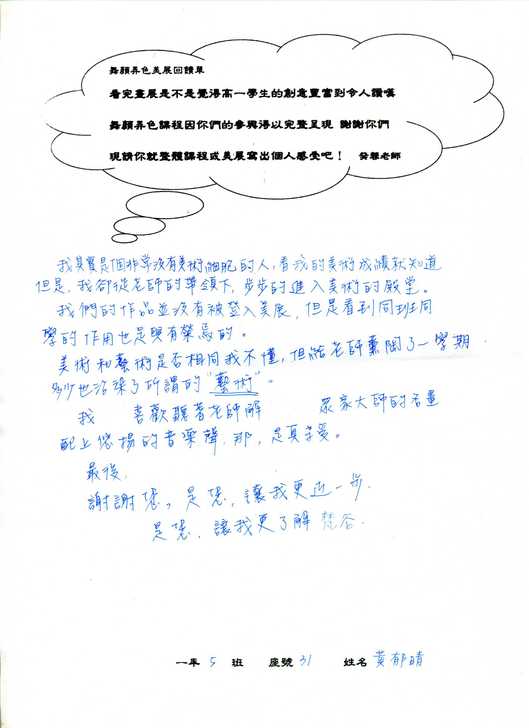 舞顏弄色美展回饋單
看完畫展是不是覺得高一學生的創意豐富到令人讚嘆
舞顏弄色課程因你們的參與得以完整呈現 謝謝你們
現請你就整體課程或美展寫出個人感受吧！ 發粿老師
我其實是個非常沒有美術細胞的人,看我的美術成績就知道
但是,我卻從老師的帶領下,步步的進入美術的殿堂。
我們的作品並沒有被登入美展,但是看到同班同
學的作用也是與有榮焉的。
美術和藝術是否相同我不懂,但給老師薰陶了一學期.
多少也沾染了所謂的"藝術"。
我 喜歡聽著老師解 家大師的名畫
配上悠揚的音樂聲,那,是真享受。
最後,
謝謝您,是您,讓我更進一步.
是您,讓我更了解梵谷.
一年 5 班 座號 31 姓名 黃郁晴